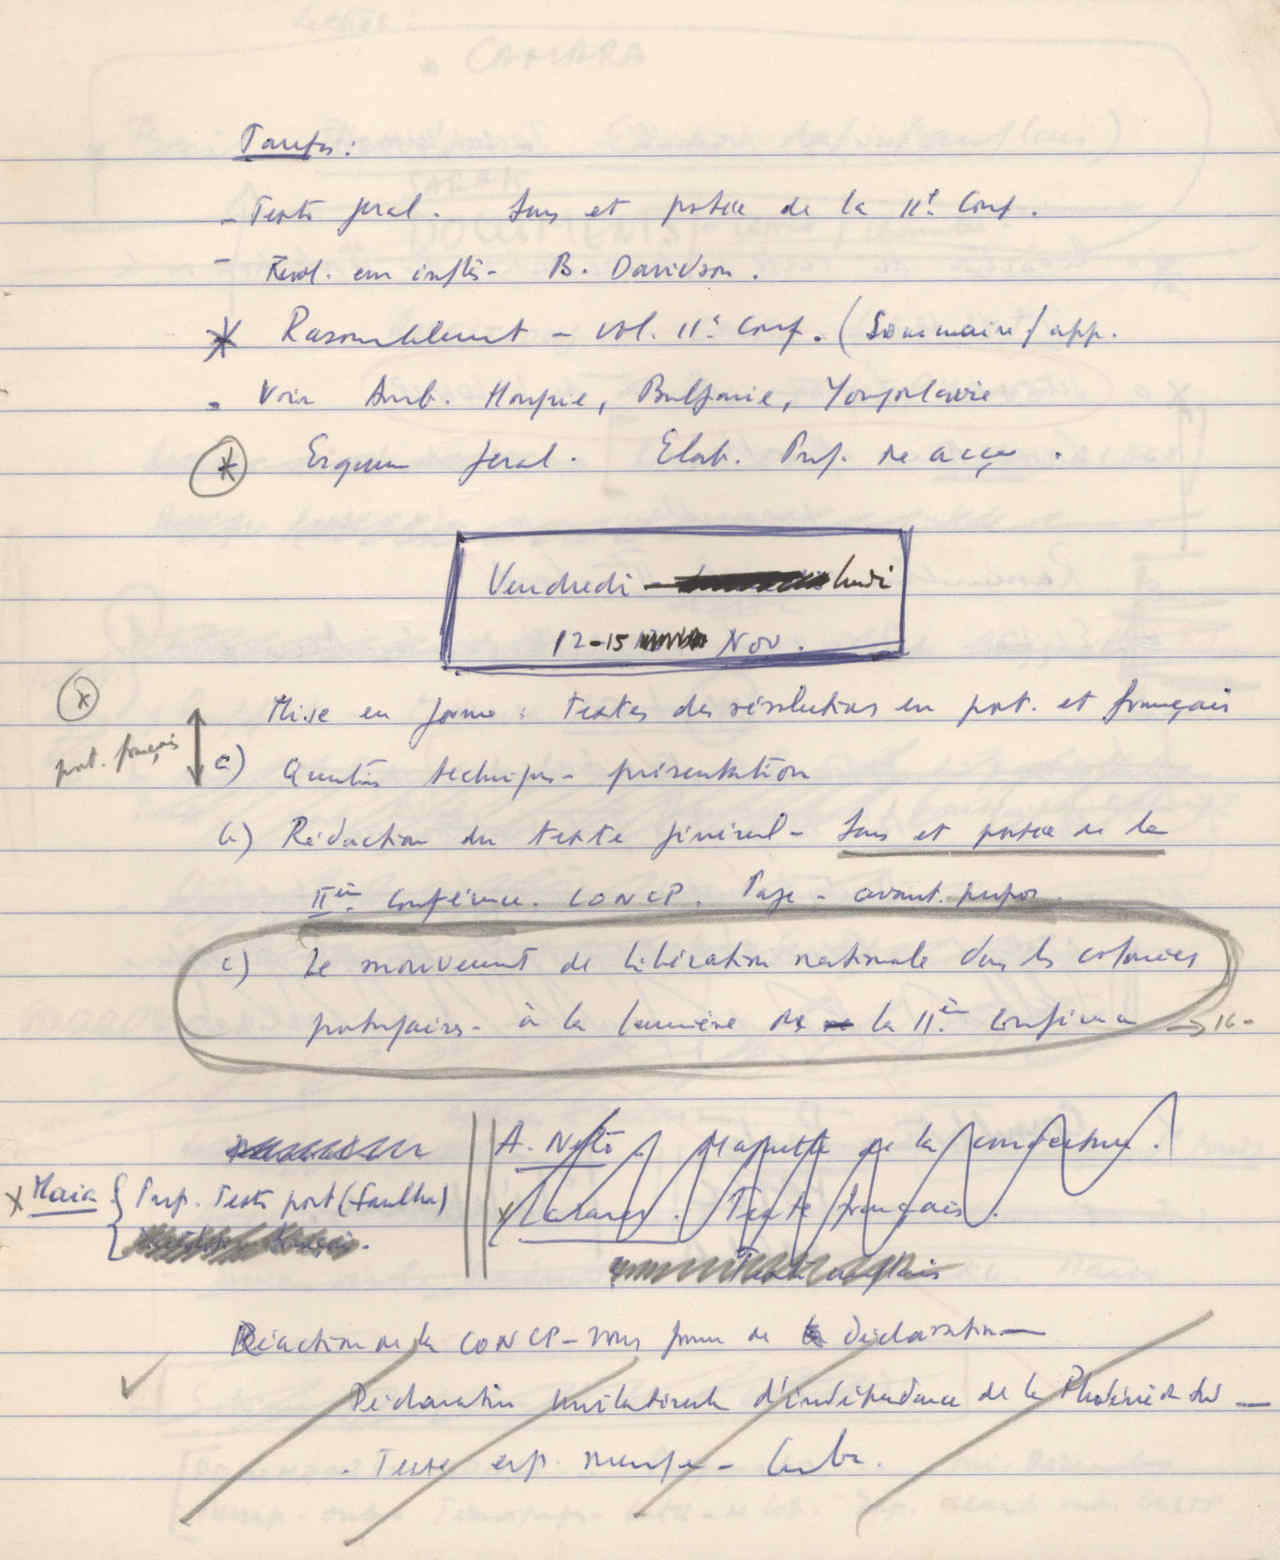 Tarefas:
- Texto geral. Sens et portée de la IIe Conf.
- Resol. em inglês - B. Davidson.
* Rassemblement - vol. IIe Conf. (Sommaire / app.
- Voir Amb. Hongrie, Bulgarie, Yougoslavie
* geral. Elab. de acção.
Vendredi - lundi
12-15 Nov.
* Mise en forme : textes des résolutions en port. et français
port. français
a) techniques - présentation
b) Rédaction du texte général - Sens et portée de la
IIème Conférence. CONCP. Page - avant-propos.
c) Le mouvement de libération nationale dans les colonies
portugaises - à la lumière de la IIème Conférence → 16-
A. Neto. Maquette de la couverture.
x Maia { Prep. Texto port (
x Lazarev. Texte français.
Texte anglais
Réaction de la CONCP - sous forme de déclaration
Déclaration Unilatérale d'indépendance de la Rhodésie du Sud -
- Texte esp. - Cuba.